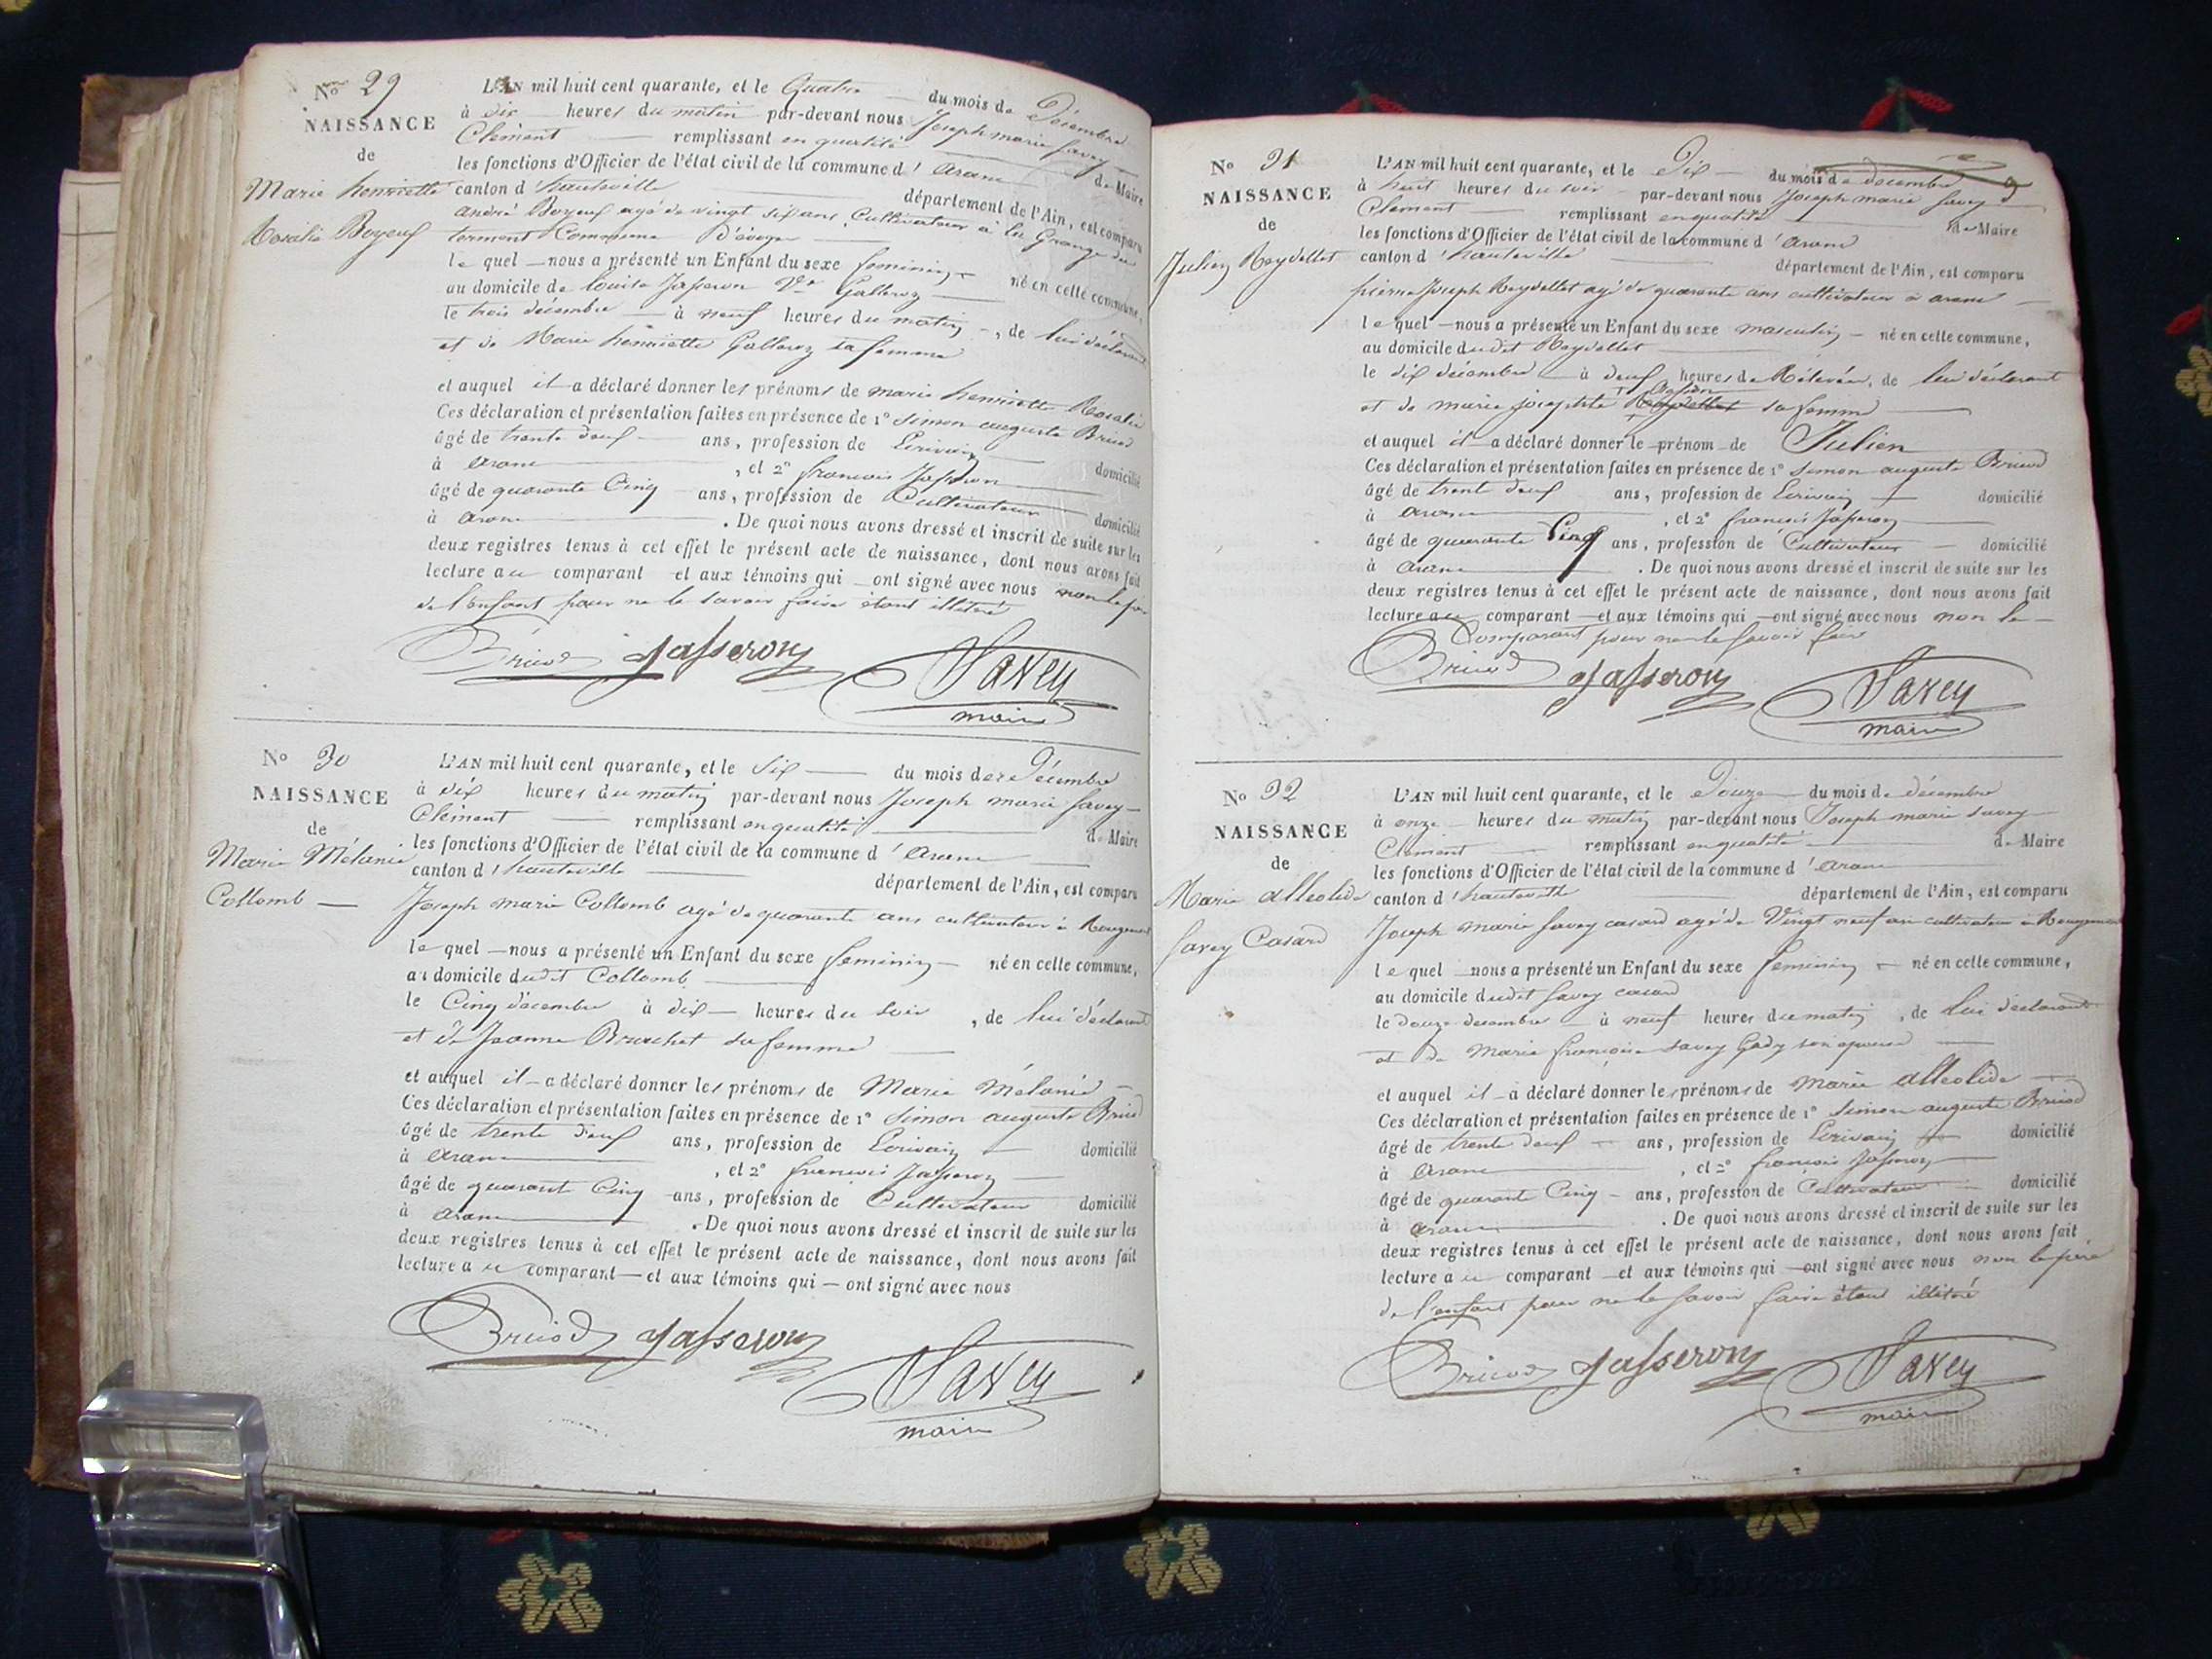 No 29
NAISSANCE
de
Marie henriette
Rosalie Boyeuf
L'AN mil huit cent quarante, et le Quatre du mois de Décembre
à dix heures du matin par-devant nous Joseph marie Savey
Clément remplissant en qualité de Maire
les fonctions d'Officier de l'état civil de la commune d'aranc
canton d'hauteville département de l'Ain, est comparu
andré Boyeuf agé de vingt six ans, Cultivateur à la Grange du
torment Commune
le quel nous a présenté un Enfant du sexe feminin né en cette commune,
au domicile de louise Jasseron Ve Galleroz
le trois décembre à neuf heures du matin, de lui déclarant
et de Marie henriette Galleroz sa femme
et auquel il a déclaré donner les prénoms de marie henriette Rosalie
Ces déclaration et présentation faites en présence de 1o Simon auguste Bricod
âgé de trente deuf ans, profession de Ecrivain domicilié
à aranc, et 2o francois Jasseron
âgé de quarante Cinq ans, profession de Cultivateur domicilié
à aranc. De quoi nous avons dressé et inscrit de suite sur les
deux registres tenus à cet effet le présent acte de naissance, dont nous avons fait
lecture au comparant et aux témoins qui ont signé avec nous non le père
de l'enfant pour ne le savoir faire étant illitéré
Bricod Jasseron Savey
maire
No 30
NAISSANCE
de
Marie Mélanie
Collomb
L'AN mil huit cent quarante, et le Six du mois de Décembre
à dix heures du matin par-devant nous Joseph marie Savey
Clément remplissant en qualité de Maire
les fonctions d'Officier de l'état civil de la commune d'aranc
canton d'hauteville département de l'Ain, est comparu
Joseph marie Collomb agé de quarante ans cultivateur à Rougemont
le quel nous a présenté un Enfant du sexe feminin né en cette commune,
au domicile dudit Collomb
le Cinq décembre à dix heures du soir, de lui déclarant
et de Jeanne Brachet sa femme
et auquel il a déclaré donner les prénoms de Marie Mélanie
Ces déclaration et présentation faites en présence de 1o Simon auguste Bricod
âgé de trente deuf ans, profession de Ecrivain domicilié
à aranc, et 2o francois Jasseron
âgé de quarant Cinq ans, profession de Cultivateur domicilié
à aranc. De quoi nous avons dressé et inscrit de suite sur les
deux registres tenus à cet effet le présent acte de naissance, dont nous avons fait
lecture au comparant et aux témoins qui ont signé avec nous
Bricod Jasseron Savey
maire
No 31
NAISSANCE
de
Julien Reydellet
L'AN mil huit cent quarante, et le Dix du mois de décembre
à huit heures du soir par-devant nous Joseph marie Savey
Clement remplissant en qualité de Maire
les fonctions d'Officier de l'état civil de la commune d'aranc
canton d'hauteville département de l'Ain, est comparu
pierre Joseph Reydellet agé de quarante ans cultivateur à aranc
le quel nous a présenté un Enfant du sexe masculin né en cette commune,
au domicile dudit Reydellet
le dix décembre à deuf heures de Relevée, de lui déclarant
et de marie josephte Reydellet sa femme
et auquel il a déclaré donner le prénom de Julien
Ces déclaration et présentation faites en présence de 1o Simon auguste Bricod
âgé de trent deuf ans, profession de Ecrivain domicilié
à aranc, et 2o francois Jasseron
âgé de quarante Cinq ans, profession de Cultivateur domicilié
à aranc. De quoi nous avons dressé et inscrit de suite sur les
deux registres tenus à cet effet le présent acte de naissance, dont nous avons fait
lecture au comparant et aux témoins qui ont signé avec nous non le
Comparant pour ne le savoir faire
Bricod Jasseron Savey
maire
No 32
NAISSANCE
de
Marie alleolide
Savey Casard
L'AN mil huit cent quarante, et le Douze du mois de décembre
à onze heures du matin par-devant nous Joseph marie Savey
Clement remplissant en qualité de Maire
les fonctions d'Officier de l'état civil de la commune d'aranc
canton d'hauteville département de l'Ain, est comparu
Joseph marie Savey casard agé de Vingt neuf an cultivateur à Rougemont
le quel nous a présenté un Enfant du sexe feminin né en cette commune,
au domicile dudit Savey casard
le douze decembre à neuf heures du matin, de lui déclarant
et de Marie françoise Savey Gady son epouse
et auquel il a déclaré donner les prénoms de marie alleolide
Ces déclaration et présentation faites en présence de 1o Simon auguste Bricod
âgé de trente deuf ans, profession de Ecrivain domicilié
à aranc, et 2o francois Jasseron
âgé de quarante Cinq ans, profession de Cultivateur domicilié
à aranc. De quoi nous avons dressé et inscrit de suite sur les
deux registres tenus à cet effet le présent acte de naissance, dont nous avons fait
lecture au comparant et aux témoins qui ont signé avec nous non le père
de l'enfant pour ne le savoir faire étant illitéré
Bricod Jasseron Savey
maire